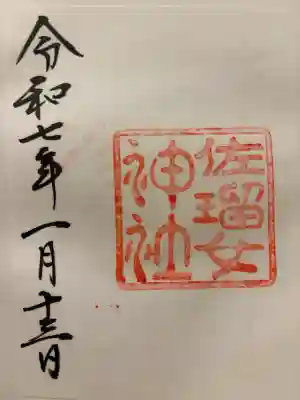 佐瑠女
神社
令和七年一月十三日